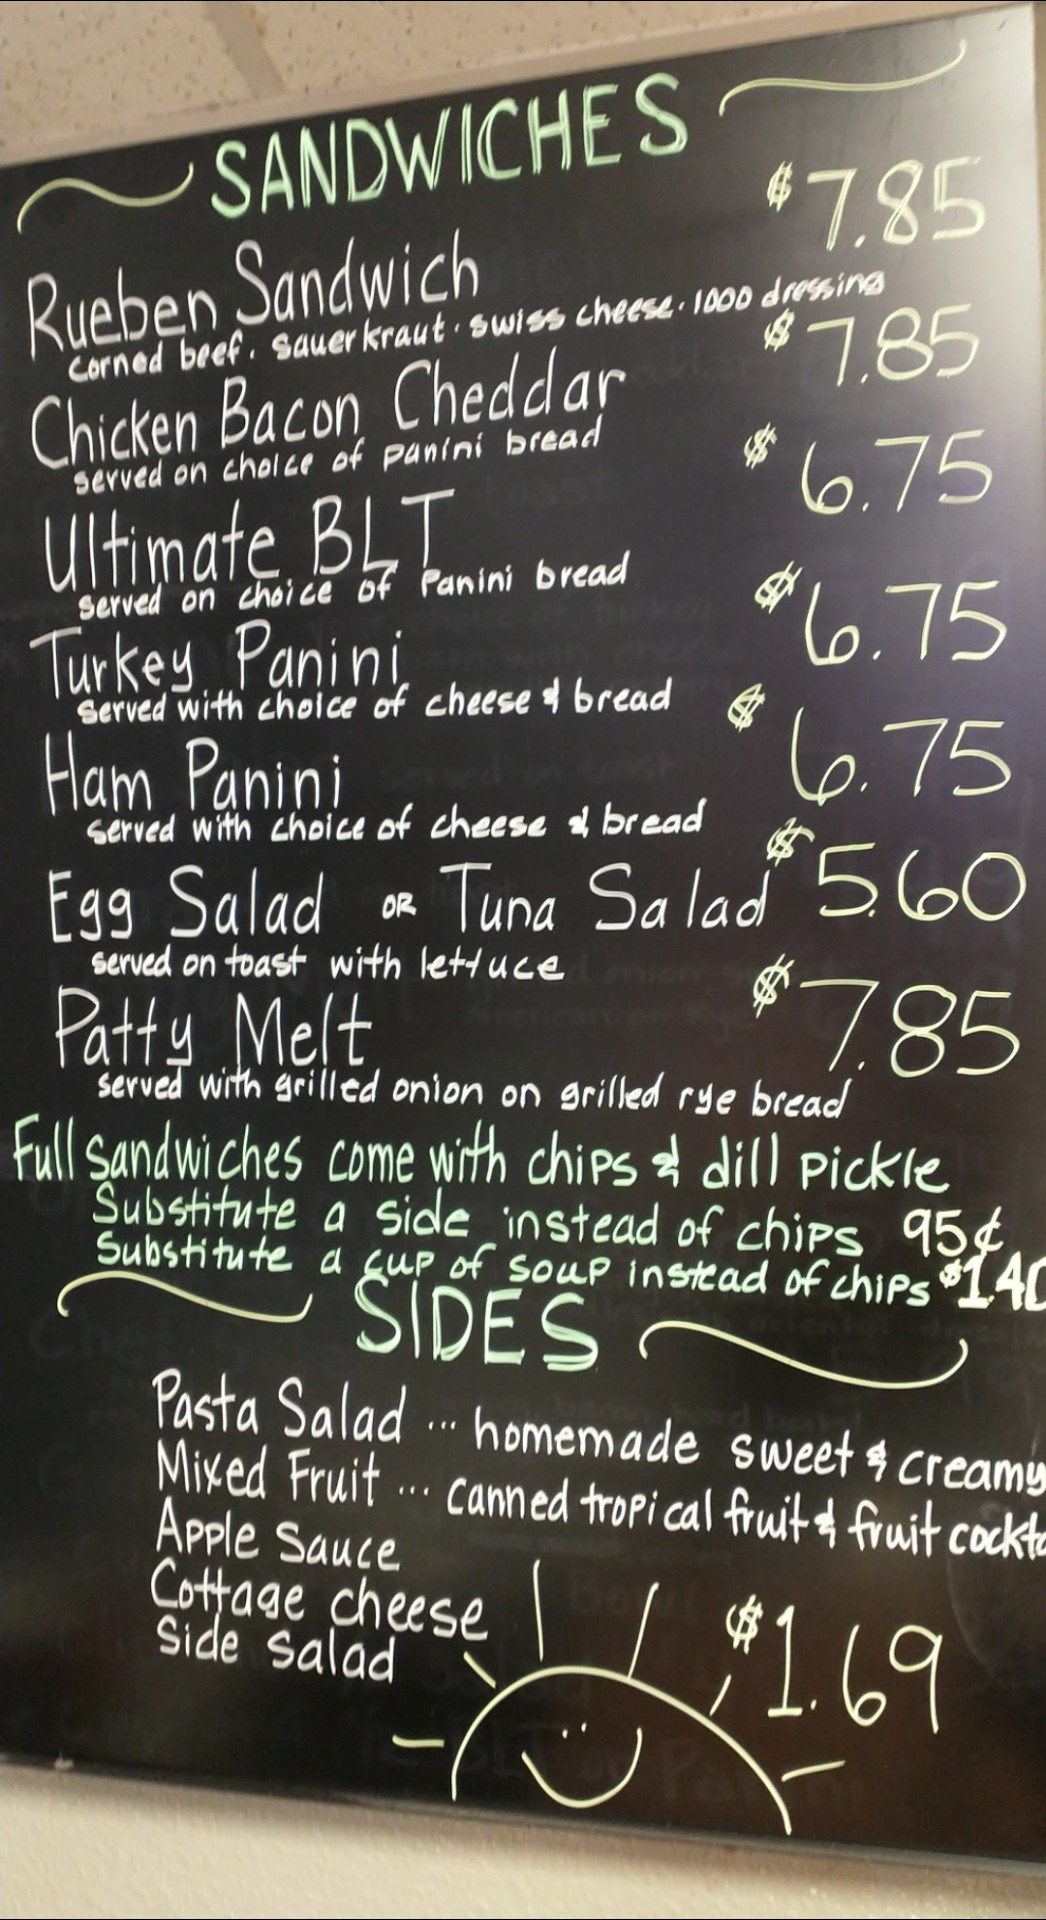 SANDWICHES
Rueben Sandwich $7.85
corned beef. sauerkraut. swiss cheese. 1000 dressing
Chicken Bacon Cheddar $7.85
served on choice of panini bread
Ultimate BLT $6.75
served on choice of Panini bread
Turkey Panini $6.75
served with choice of cheese & bread
Ham Panini $6.75
served with choice of cheese & bread
Egg Salad OR Tuna Salad $5.60
served on toast with lettuce
Patty Melt $7.85
served with grilled onion on grilled rye bread
Full sandwiches come with chips & dill pickle
Substitute a side instead of chips 95¢
Substitute a cup of soup instead of chips $1.40
SIDES
Pasta Salad ... homemade sweet & creamy
Mixed Fruit ... canned tropical fruit & fruit cockta
Apple Sauce
Cottage cheese
Side Salad
$1.69